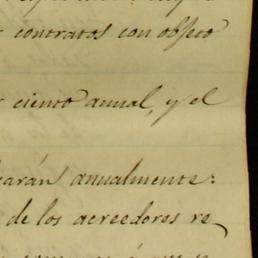 contratos con objeto
ciento anual, y el
arán anualmente:
de los acreedores re